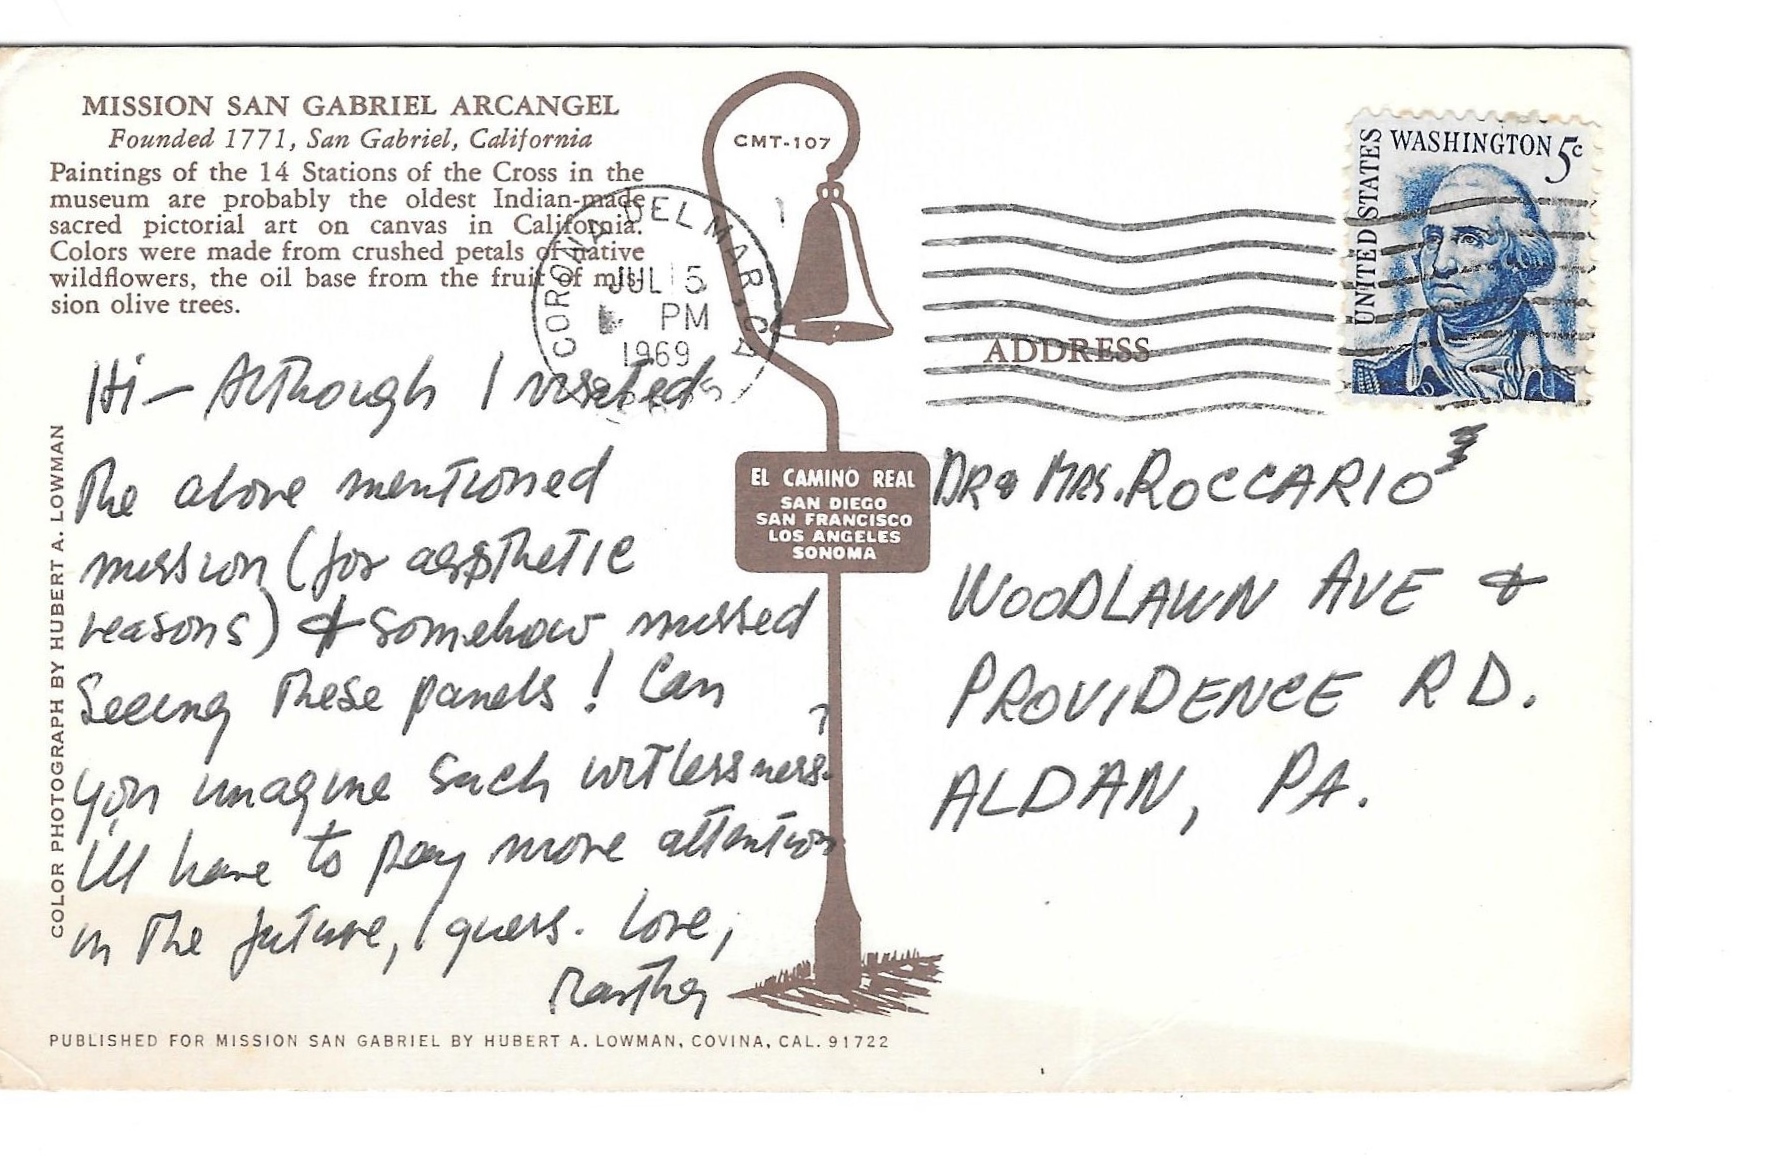 MISSION SAN GABRIEL ARCANGEL
Founded 1771, San Gabriel, California
Paintings of the 14 Stations of the Cross in the
museum are probably the oldest Indian-made
sacred pictorial art on canvas in California.
Colors were made from crushed petals of native
wildflowers, the oil base from the fruit of mis-
sion olive trees.
CMT-107
CORONA DEL MAR, CA
JUL 5
PM
1969
UNITED STATES
WASHINGTON 5c
ADDRESS
Hi – Although I visited
the above mentioned
mission (for aesthetic
reasons) & somehow missed
seeing these panels! Can
you imagine such witlessness?
I'll have to pay more attention
in the future, I guess. Love,
EL CAMINO REAL
SAN DIEGO
SAN FRANCISCO
LOS ANGELES
SONOMA
DR & MRS. ROCCARIO
WOODLAWN AVE &
PROVIDENCE RD.
ALDAN, PA.
COLOR PHOTOGRAPH BY HUBERT A. LOWMAN
PUBLISHED FOR MISSION SAN GABRIEL BY HUBERT A. LOWMAN, COVINA, CAL. 91722